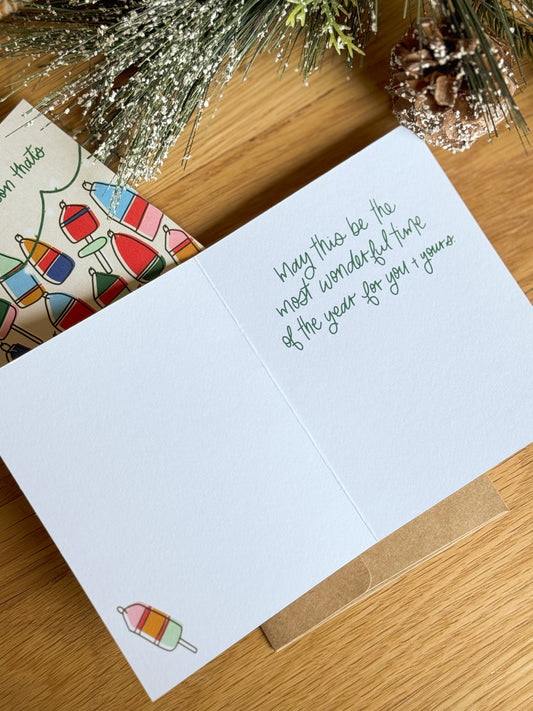 son that's
may this be the
most wonderful time
of the year for you + yours